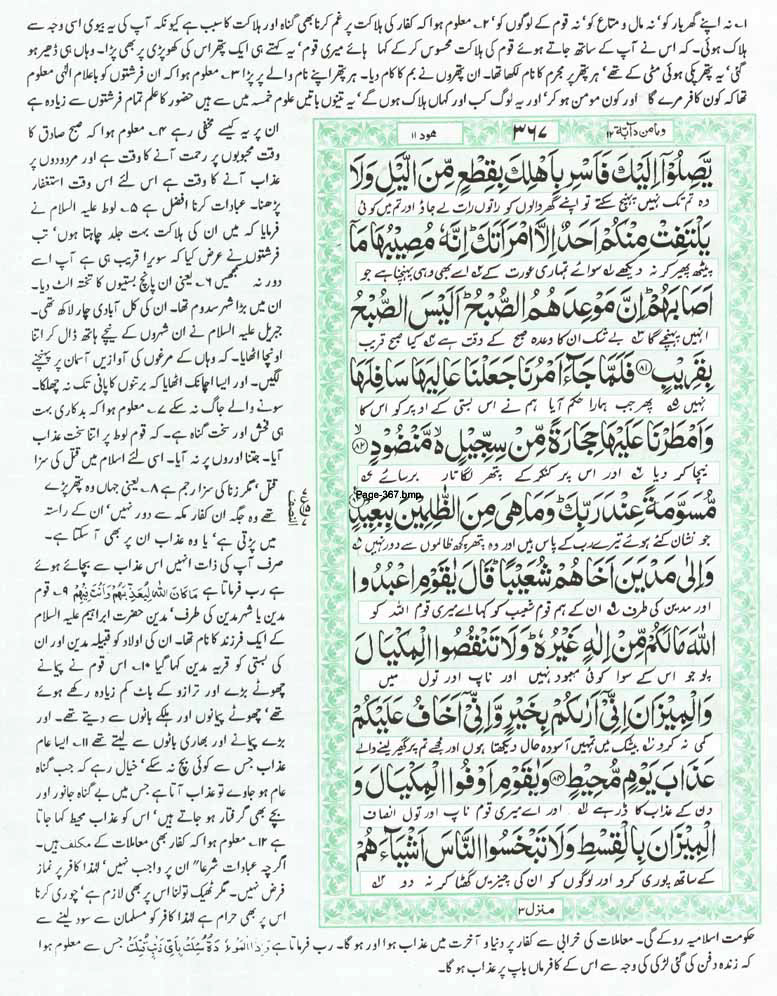 ۱۔ نہ اپنے گھر بار کو' نہ مال و متاع کو' نہ قوم کے لوگوں کو' ۲۔ معلوم ہوا کہ کفار کی ہلاکت پر غم کرنا بھی گناہ اور ہلاکت کا سبب ہے کیونکہ آپ کی یہ بیوی اسی وجہ سے
ہلاک ہوئی۔ کہ اس نے آپ کے ساتھ جاتے ہوئے قوم کی ہلاکت محسوس کر کے کہا ہائے میری قوم' یہ کہتے ہی ایک پتھر اس کی کھوپڑی پر بھی پڑا۔ وہاں ہی ڈھیر ہو
گئی' یہ پتھر پکی ہوئی مٹی کے تھے' ہر پتھر پر مجرم کا نام لکھا تھا۔ ان پتھروں نے بم کا کام دیا۔ ہر پتھر اپنے نام والے پر پڑا ۳۔ معلوم ہوا کہ ان فرشتوں کو باعلام الٰہی معلوم
تھا کہ کون کافر مرے گا اور کون مومن ہو کر' اور یہ لوگ کب اور کہاں ہلاک ہوں گے' یہ تینوں باتیں علوم خمسہ میں سے ہیں حضور کا علم تمام فرشتوں سے زیادہ ہے
ومامن دآبۃ ۱۲
۳۶۷
ھود ۱۱
یَّصِلُوْۤا اِلَیْكَ فَاَسْرِ بِاَهْلِكَ بِقِطْعٍ مِّنَ الَّیْلِ وَلَا
وہ تم تک نہیں پہنچ سکتے تو اپنے گھر والوں کو راتوں رات لے جاؤ اور تم میں کوئی
یَلْتَفِتْ مِنْكُمْ اَحَدٌ اِلَّا امْرَاَتَكَ اِنَّهٗ مُصِیْبُهَا مَاۤ
پیٹھ پھیر کر نہ دیکھے سوائے تمہاری عورت کے اسے بھی وہی پہنچنا ہے جو
اَصَابَهُمْ اِنَّ مَوْعِدَهُمُ الصُّبْحُ اَلَیْسَ الصُّبْحُ
انہیں پہنچے گا بے شک ان کا وعدہ صبح کے وقت ہے کیا صبح قریب
بِقَرِیْبٍ ﴿۸۱﴾ فَلَمَّا جَآءَ اَمْرُنَا جَعَلْنَا عَالِیَهَا سَافِلَهَا
نہیں پھر جب ہمارا حکم آیا ہم نے اس بستی کے اوپر کو اس کا
وَاَمْطَرْنَا عَلَیْهَا حِجَارَةً مِّنْ سِجِّیْلٍ مَّنْضُوْدٍ ﴿۸۲﴾
نیچا کر دیا اور اس پر کنکر کے پتھر لگاتار برسائے
Page-367.bmp
مُّسَوَّمَةً عِنْدَ رَبِّكَ وَمَا هِیَ مِنَ الظّٰلِمِیْنَ بِبَعِیْدٍ
جو نشان کئے ہوئے تیرے رب کے پاس ہیں اور وہ پتھر کچھ ظالموں سے دور نہیں
وَاِلٰى مَدْیَنَ اَخَاهُمْ شُعَیْبًا قَالَ یٰقَوْمِ اعْبُدُوا
اور مدین کی طرف ان کے ہم قوم شعیب کو کہا اے میری قوم اللہ کو
اللّٰهَ مَا لَكُمْ مِّنْ اِلٰهٍ غَیْرُهٗ وَلَا تَنْقُصُوا الْمِكْیَالَ
پوجو اس کے سوا کوئی معبود نہیں اور ناپ اور تول میں
وَالْمِیْزَانَ اِنِّیْۤ اَرٰىكُمْ بِخَیْرٍ وَّاِنِّیْۤ اَخَافُ عَلَیْكُمْ
کمی نہ کرو بیشک میں تمہیں آسودہ حال دیکھتا ہوں اور مجھے تم پر گھیر لینے والے
عَذَابَ یَوْمٍ مُّحِیْطٍ ﴿۸۴﴾ وَیٰقَوْمِ اَوْفُوا الْمِكْیَالَ وَ
دن کے عذاب کا ڈر ہے اور اے میری قوم ناپ اور تول انصاف
الْمِیْزَانَ بِالْقِسْطِ وَلَا تَبْخَسُوا النَّاسَ اَشْیَآءَهُمْ
کے ساتھ پوری کرو اور لوگوں کو ان کی چیزیں گھٹا کر نہ دو
منزل ۳
ان پر یہ کیسے مخفی رہے ۴۔ معلوم ہوا کہ صبح صادق کا
وقت محبوبوں پر رحمت آنے کا وقت ہے اور مردودوں پر
عذاب آنے کا وقت ہے اس لئے اس وقت استغفار
پڑھنا۔ عبادات کرنا افضل ہے ۵۔ لوط علیہ السلام نے
فرمایا کہ میں ان کی ہلاکت بہت جلد چاہتا ہوں' تب
فرشتوں نے عرض کیا کہ سویرا قریب ہی ہے آپ اسے
دور نہ سمجھیں ۶۔ یعنی ان پانچ بستیوں کا تختہ الٹ دیا۔
ان میں بڑا شہر سدوم تھا۔ ان کی کل آبادی چار لاکھ تھی۔
جبریل علیہ السلام نے ان شہروں کے نیچے ہاتھ ڈال کر اتنا
اونچا اٹھایا۔ کہ وہاں کے مرغوں کی آوازیں آسمان پر پہنچنے
لگیں۔ اور ایسا اچانک اٹھایا کہ برتنوں کا پانی تک نہ چھلکا۔
سونے والے جاگ نہ سکے ۷۔ معلوم ہوا کہ بدکاری بہت
ہی فحش اور سخت گناہ ہے۔ کہ قوم لوط پر اتنا سخت عذاب
آیا۔ جتنا اوروں پر نہ آیا۔ اسی لئے اسلام میں قتل کی سزا
قتل' مگر زنا کی سزا رجم ہے ۸۔ یعنی جہاں وہ پتھر پڑے
تھے وہ جگہ ان کفار مکہ سے دور نہیں' ان کے راستہ
میں پڑتی ہے' یا وہ عذاب ان پر بھی آ سکتا ہے۔
صرف آپ کی ذات انہیں اس عذاب سے بچائے ہوئے
ہے رب فرماتا ہے مَا كَانَ اللّٰهُ لِيُعَذِّبَهُمْ وَاَنْتَ فِيْهِمْ ۹۔ قوم
مدین یا شہر مدین کی طرف' مدین حضرت ابراہیم علیہ السلام
کے ایک فرزند کا نام تھا۔ ان کی اولاد کو قبیلہ مدین اور ان
کی بستی کو قریہ مدین کہا گیا ۱۰۔ اس قوم نے پیمانے
چھوٹے بڑے اور ترازو کے باٹ کم زیادہ رکھے ہوئے
تھے' چھوٹے پیمانوں اور ہلکے باٹوں سے دیتے تھے۔ اور
بڑے پیمانے اور بھاری باٹوں سے لیتے تھے ۱۱۔ ایسا عام
عذاب جس سے کوئی بچ نہ سکے' خیال رہے کہ جب گناہ
عام ہو جاوے تو عذاب آتا ہے جس میں بے گناہ جانور اور
بچے بھی گرفتار ہو جاتے ہیں' اس کو عذاب محیط کہا جاتا
ہے ۱۲۔ معلوم ہوا کہ کفار بھی معاملات کے مکلف ہیں۔
اگرچہ عبادات شرعا" ان پر واجب نہیں' لہٰذا کافر پر نماز
فرض نہیں۔ مگر ٹھیک تولنا اس پر بھی لازم ہے' چوری کرنا
اس پر بھی حرام ہے لہٰذا کافر کو مسلمان سے سود لینے سے
حکومت اسلامیہ روکے گی۔ معاملات کی خرابی سے کفار پر دنیا و آخرت میں عذاب ہوا اور ہو گا۔ رب فرماتا ہے سُئِلَتْ بِاَيِّ ذَنْبٍ قُتِلَتْ جس سے معلوم ہوا
کہ زندہ دفن کی گئی لڑکی کی وجہ سے اس کے کافر ماں باپ پر عذاب ہو گا۔